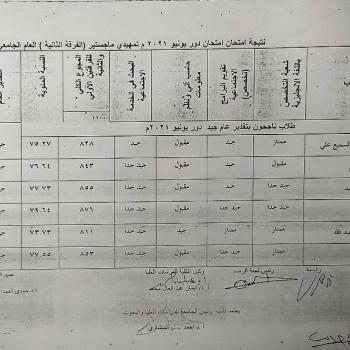 نتيجة امتحان امتحان دور يونيو ٢٠٢١ م تمهيدي ماجستير (الفرقة الثانية) العام الجامعي
شعبة التخصص باللغة الانجليزية
تقويم البرامج الاجتماعية (تخصص)
حاسب آلي ونظم معلومات
البحث في الخدمة الاجتماعية
المجموع الكلي للفرقتين الأولى والثانية
١١٠٠
النسبة المئوية
طلاب ناجحون بتقدير عام جيد دور يونيو ٢٠٢١م
السميع علي ممتاز جيد مقبول جيد ٨٢٨ ٧٥.٢٧
جيد جدا مقبول جيد جدا ٨٤٣ ٧٦.٦٤
جيد جدا جيد جدا مقبول جيد جدا ٨٥٥ ٧٧.٧٣
جيد جدا جيد جدا مقبول جيد جدا ٨٧٦ ٧٩.٦٤
عبد الله ممتاز ممتاز جيد جيد ٨١١ ٧٣.٧٣
جيد جدا جيد جدا مقبول جيد جدا ٨٥٣ ٧٧.٥٥
راجعه رئيس لجنة الرصد وكيل الكلية للدراسات العليا
يعتمد نائب رئيس الجامعة للدراسات العليا والبحوث
أ.د احمد المنشاوي